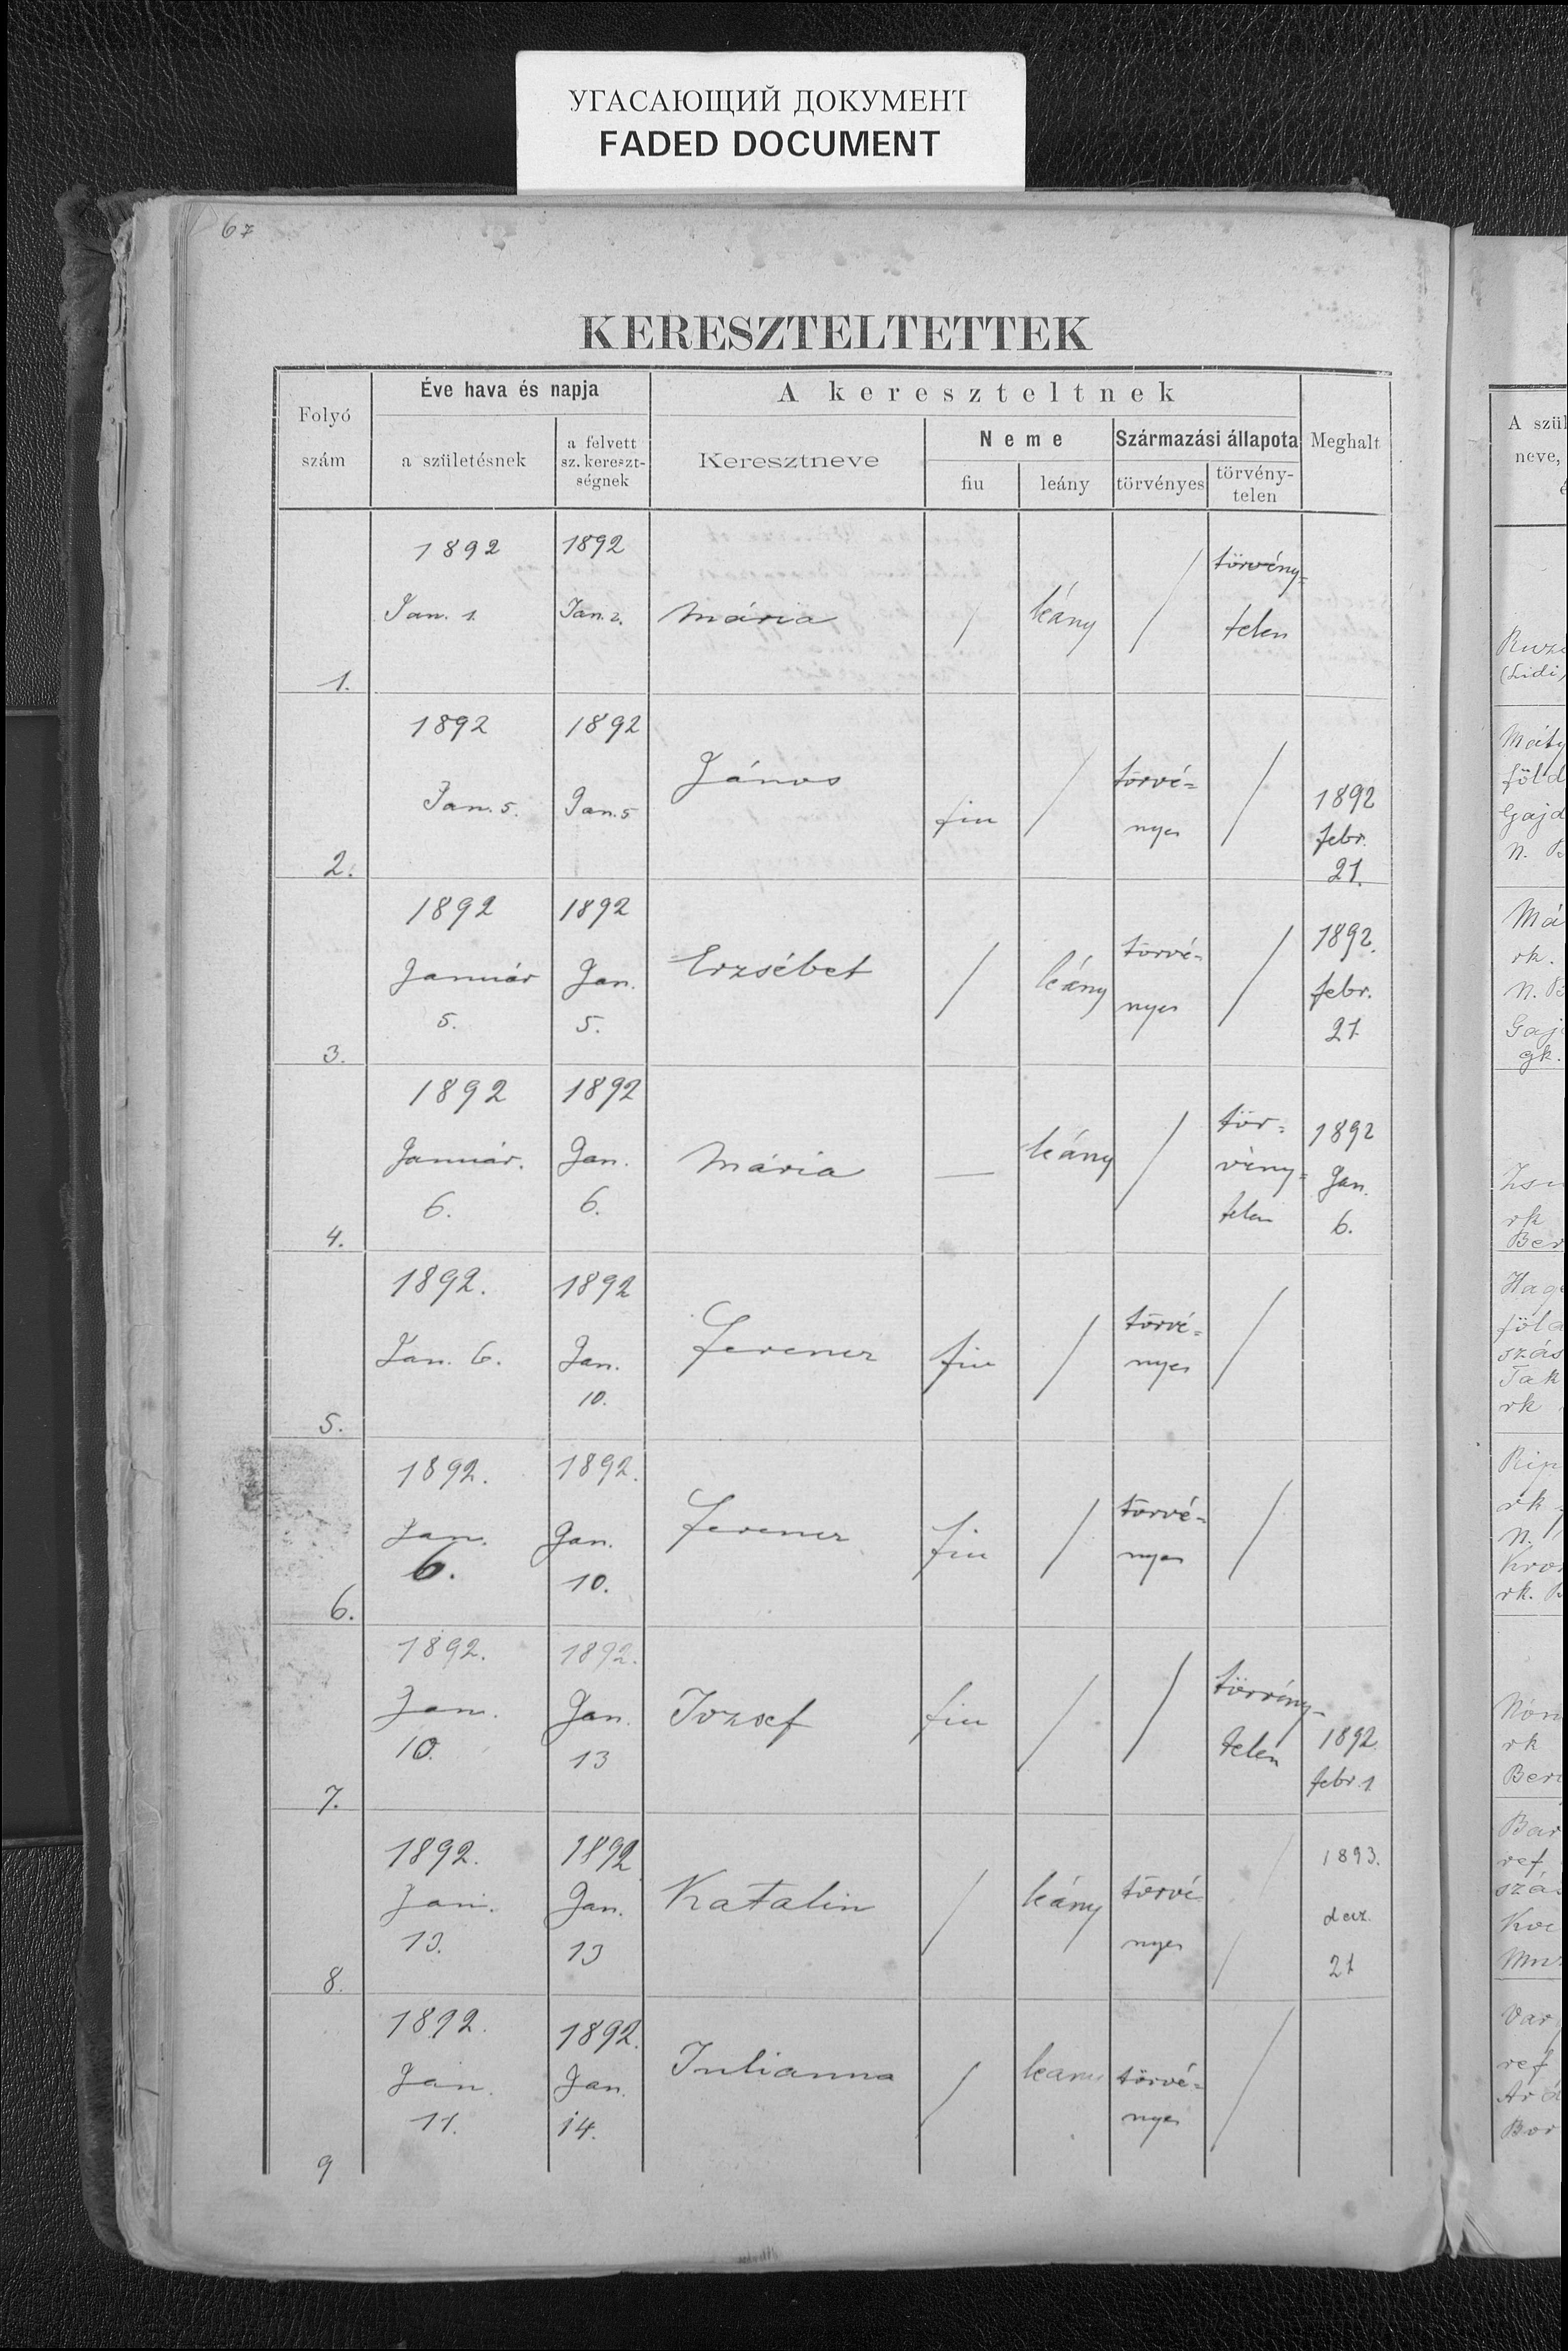 УГАСАЮЩИЙ ДОКУМЕНТ
FADED DOCUMENT
67
KERESZTELTETTEK
Folyó
szám
Éve hava és napja
a születésnek
a felvett
sz. kereszt-
ségnek
A kereszteltnek
Keresztneve
Neme
fiu
leány
Származási állapota
törvényes
törvény-
telen
Meghalt
A szül
neve,
1892
Jan. 1.
1892
Jan. 2.
Mária
/
leány
/
törvény=
telen
1.
1892
Jan. 5.
1892
Jan. 5
János
fiu
/
törvé=
nyes
/
1892
febr.
21.
2.
1892
Január
5.
1892
Jan.
5.
Erzsébet
/
leány
törvé-
nyes
/
1892.
febr.
21
3.
1892
Január.
6.
1892
Jan.
6.
Mária
—
leány
/
tör=
vény=
telen
1892
Jan.
6.
4.
1892.
Jan. 6.
1892
Jan.
10.
Ferencz
fiu
/
törvé=
nyes
/
5.
1892.
Jan.
6.
1892.
Jan.
10.
Ferencz
fiu
/
törvé=
nyes
/
6.
1892.
Jan.
10.
1892.
Jan.
13
Jozsef
fiu
/
/
törvény-
telen
1892.
febr. 1
7.
1892.
Jan.
13.
1892
Jan.
13
Katalin
/
leány
törvé
nyes
/
1893.
decz.
21
8.
1892.
Jan.
11.
1892.
Jan.
14.
Julianna
/
leany
törvé=
nyes
/
9
(Lidi
Máty
föld
Gajd
n. B
Má
rk.
n. B
Gaj
gk.
rk
Ber
föld
szás
Tak
rk
rk
n.
rk. B
rk
Bar
ref
Var
ref
Bor